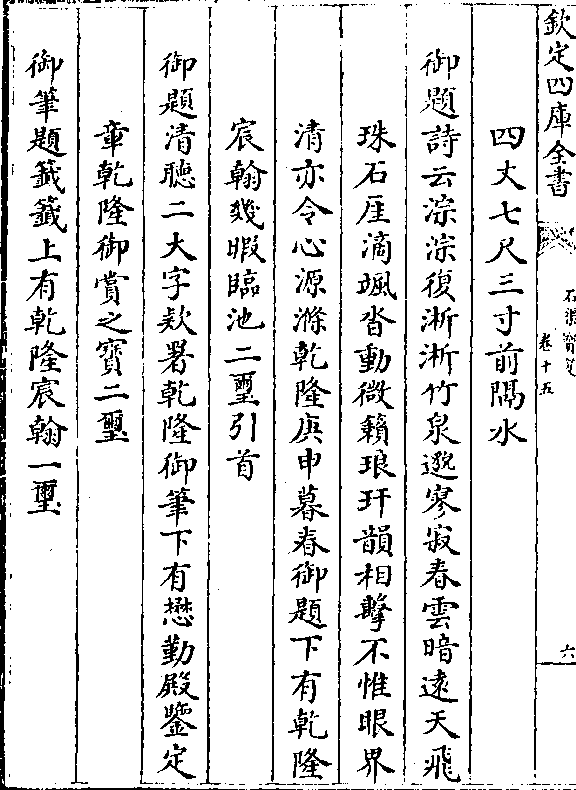 欽定四庫全書
石渠寶笈
卷十五
六
四丈七尺三寸前隅水
御題詩云淙淙復淅淅竹泉邀寥寂春雲暗遠天飛
珠石厓滴颯沓動微籟琅玕韻相擊不惟眼界
清亦令心源滌乾隆庚申暮春御題下有乾隆
宸翰幾暇臨池二璽引首
御題清聽二大字款署乾隆御筆下有懋勤殿鑒定
章乾隆御賞之寶二璽
御筆題籤籤上有乾隆宸翰一璽